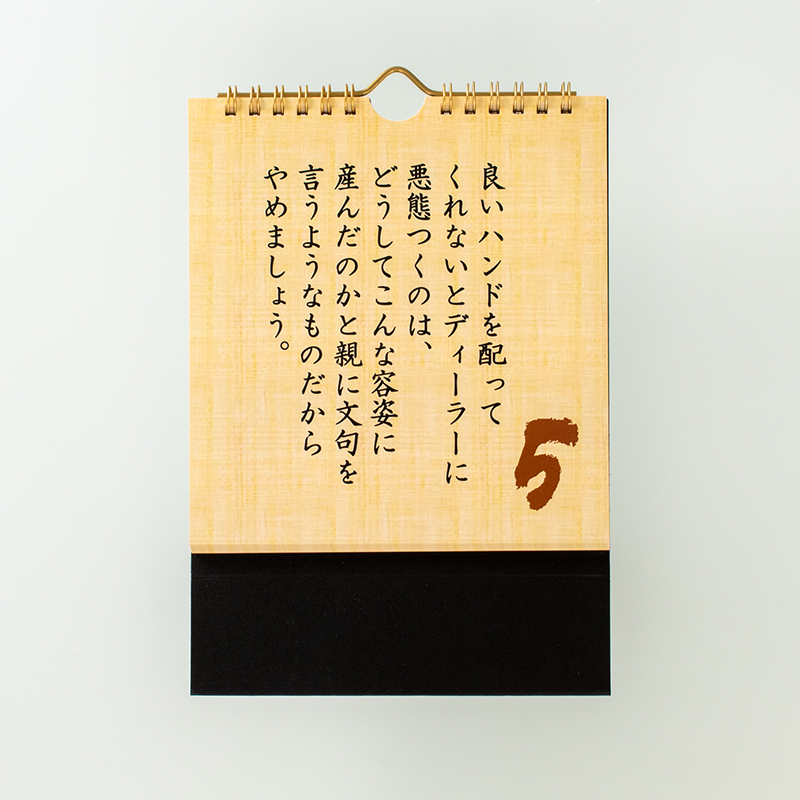 良いハンドを配って
くれないとディーラーに
悪態つくのは、
どうしてこんな容姿に
産んだのかと親に文句を
言うようなものだから
やめましょう。
5